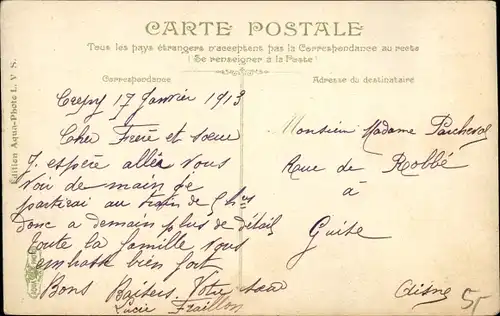 CARTE POSTALE
Tous les pays étrangers n'acceptent pas la Correspondance au recto
(Se renseigner à la Poste)
Correspondance
Adresse du destinataire
Édition Aqua-Photo L. V. S.
17 Janvier 1913
Cher Frere et soeur
J. espère allér vous
voir de main je
partirai au train de 5 h
donc a demain plus de détail
toute la famille vous
embrasse bien fort
Bons Baisers. Votre soeur
Lucie Fraillon
Monsieur Madame
Rue de Robbé
à
Guise
Aisne